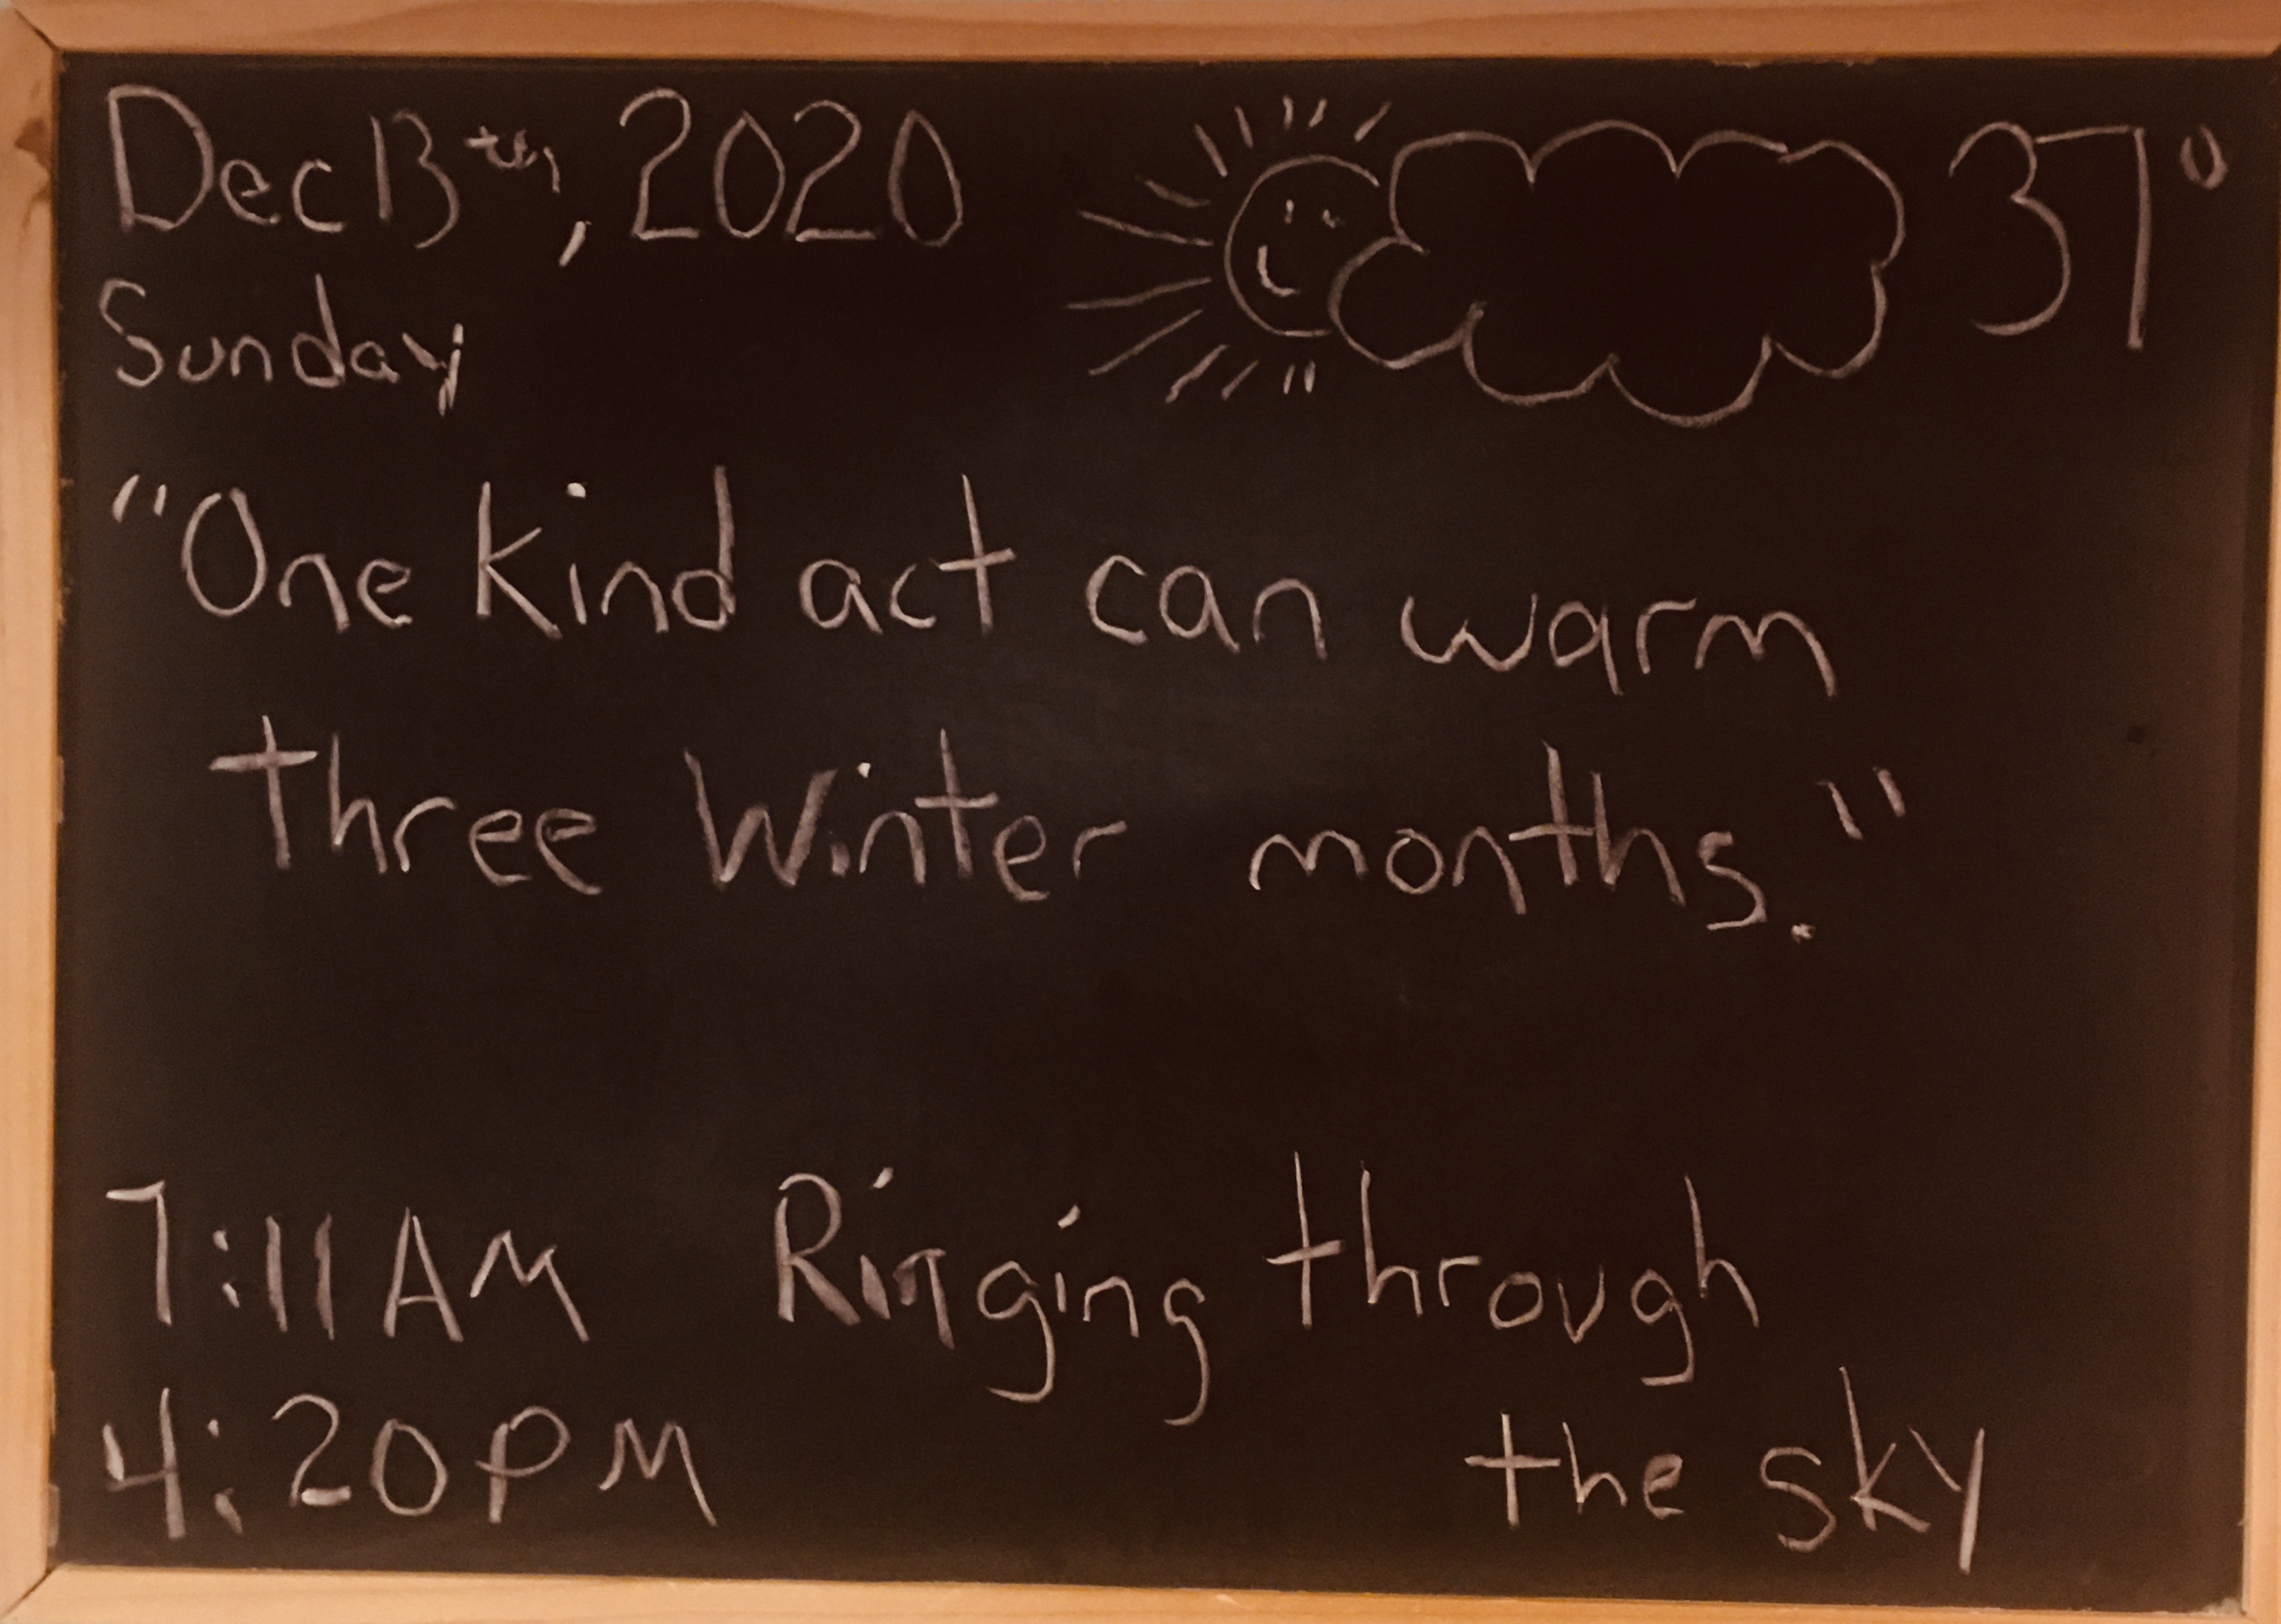 Dec 13th, 2020
37°
Sunday
"One kind act can warm
three Winter months."
7:11 AM Ringing through
4:20 PM the sky